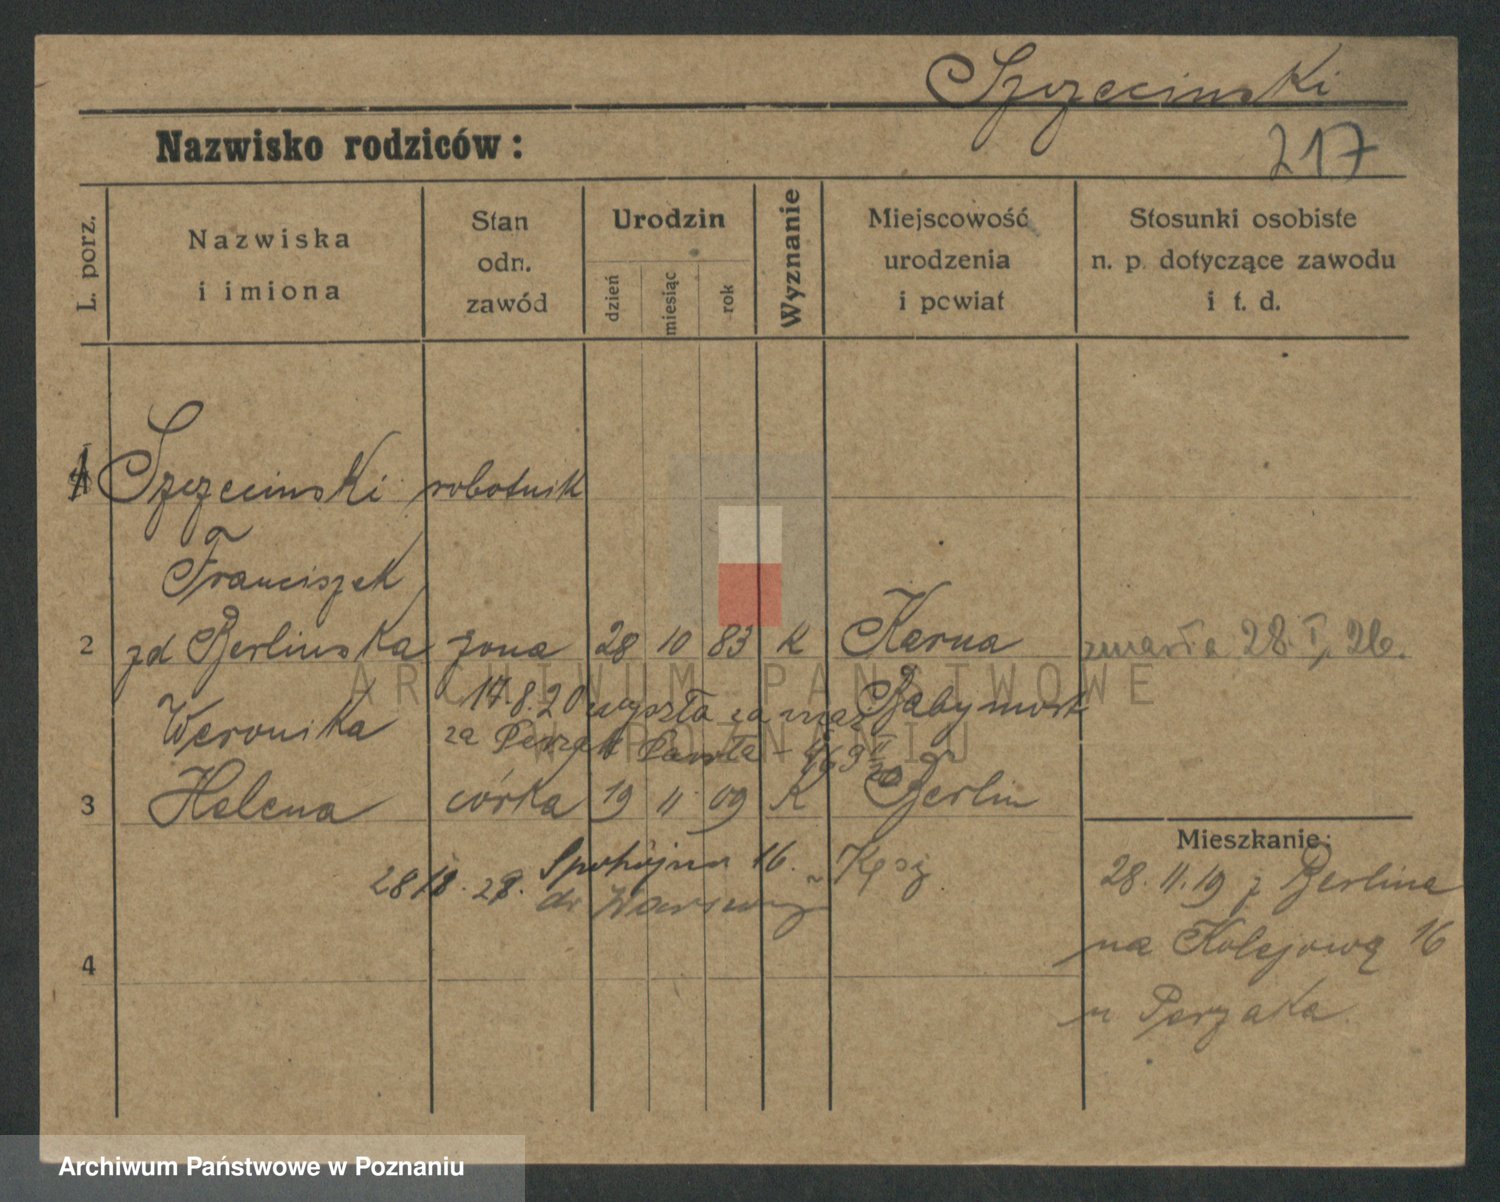 Szczecinski
Nazwisko rodziców:
217
L. porz.
Nazwiska
i imiona
Stan
odn.
zawód
Urodzin
dzień
miesiąc
rok
Wyznanie
Miejscowość
urodzenia
i powiat
Stosunki osobiste
n. p. dotyczące zawodu
i t. d.
1 Szczecinski robotnik
Franciszek
2 zd Berlinska żona 28 10 83 K Karna zmarła 28. I, 26.
Weronika 17.8.20 wyszła za mąż Babymost
za Perzak
3 Helena córka 19 11 09 K Berlin
Mieszkanie:
Spokojna 16.
28. 11. 19 z Berlina
do Warszawy
na Kolejową 16
4
u Perzaka
ARCHIWUM PAŃSTWOWE
W POZNANIU
Archiwum Państwowe w Poznaniu